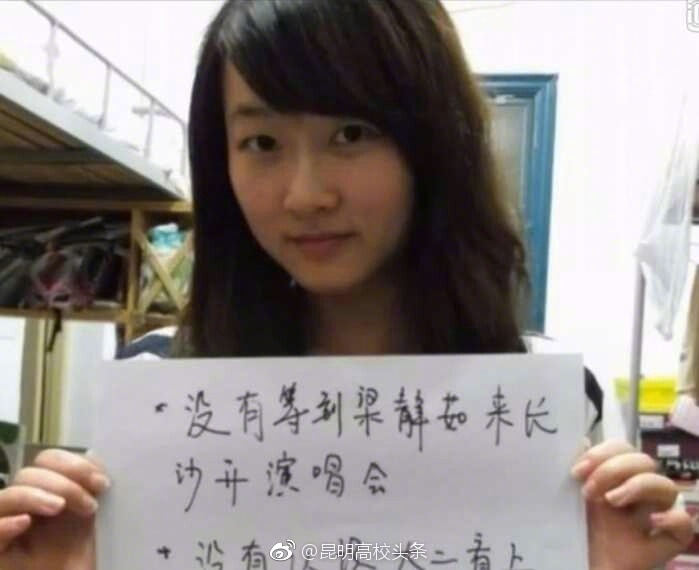 * 没有等到梁静茹来长
沙开演唱会
* 没有 大二看上
@昆明高校头条